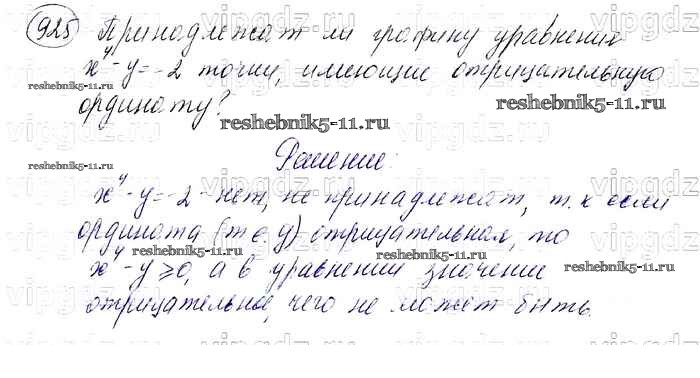 925 Принадлежат ли графику уравнения
x⁴-y=-2 точки, имеющие отрицательную
ординату?
reshebnik5-11.ru
reshebnik5-11.ru
reshebnik5-11.ru
Решение:
reshebnik5-11.ru
x⁴-y=-2 - нет, не принадлежат, т.к если
reshebnik5-11.ru
ордината (т.е. y) отрицательная, то
x⁴-y≥0, а в уравнении значение
reshebnik5-11.ru
отрицательное, чего не может быть.
vipgdz
vipgdz.ru